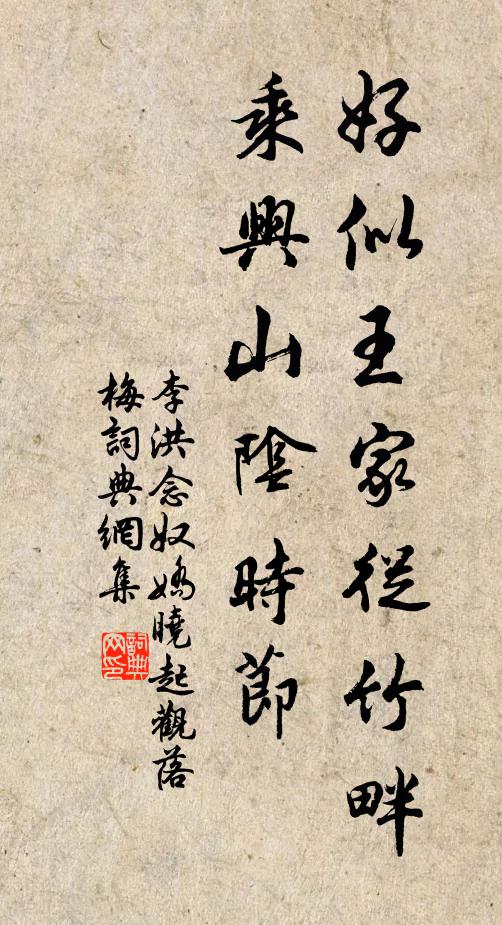 好似王家從竹畔
乘興山陰時節
李洪念奴嬌曉起觀落
梅詞典網集
詞典网印